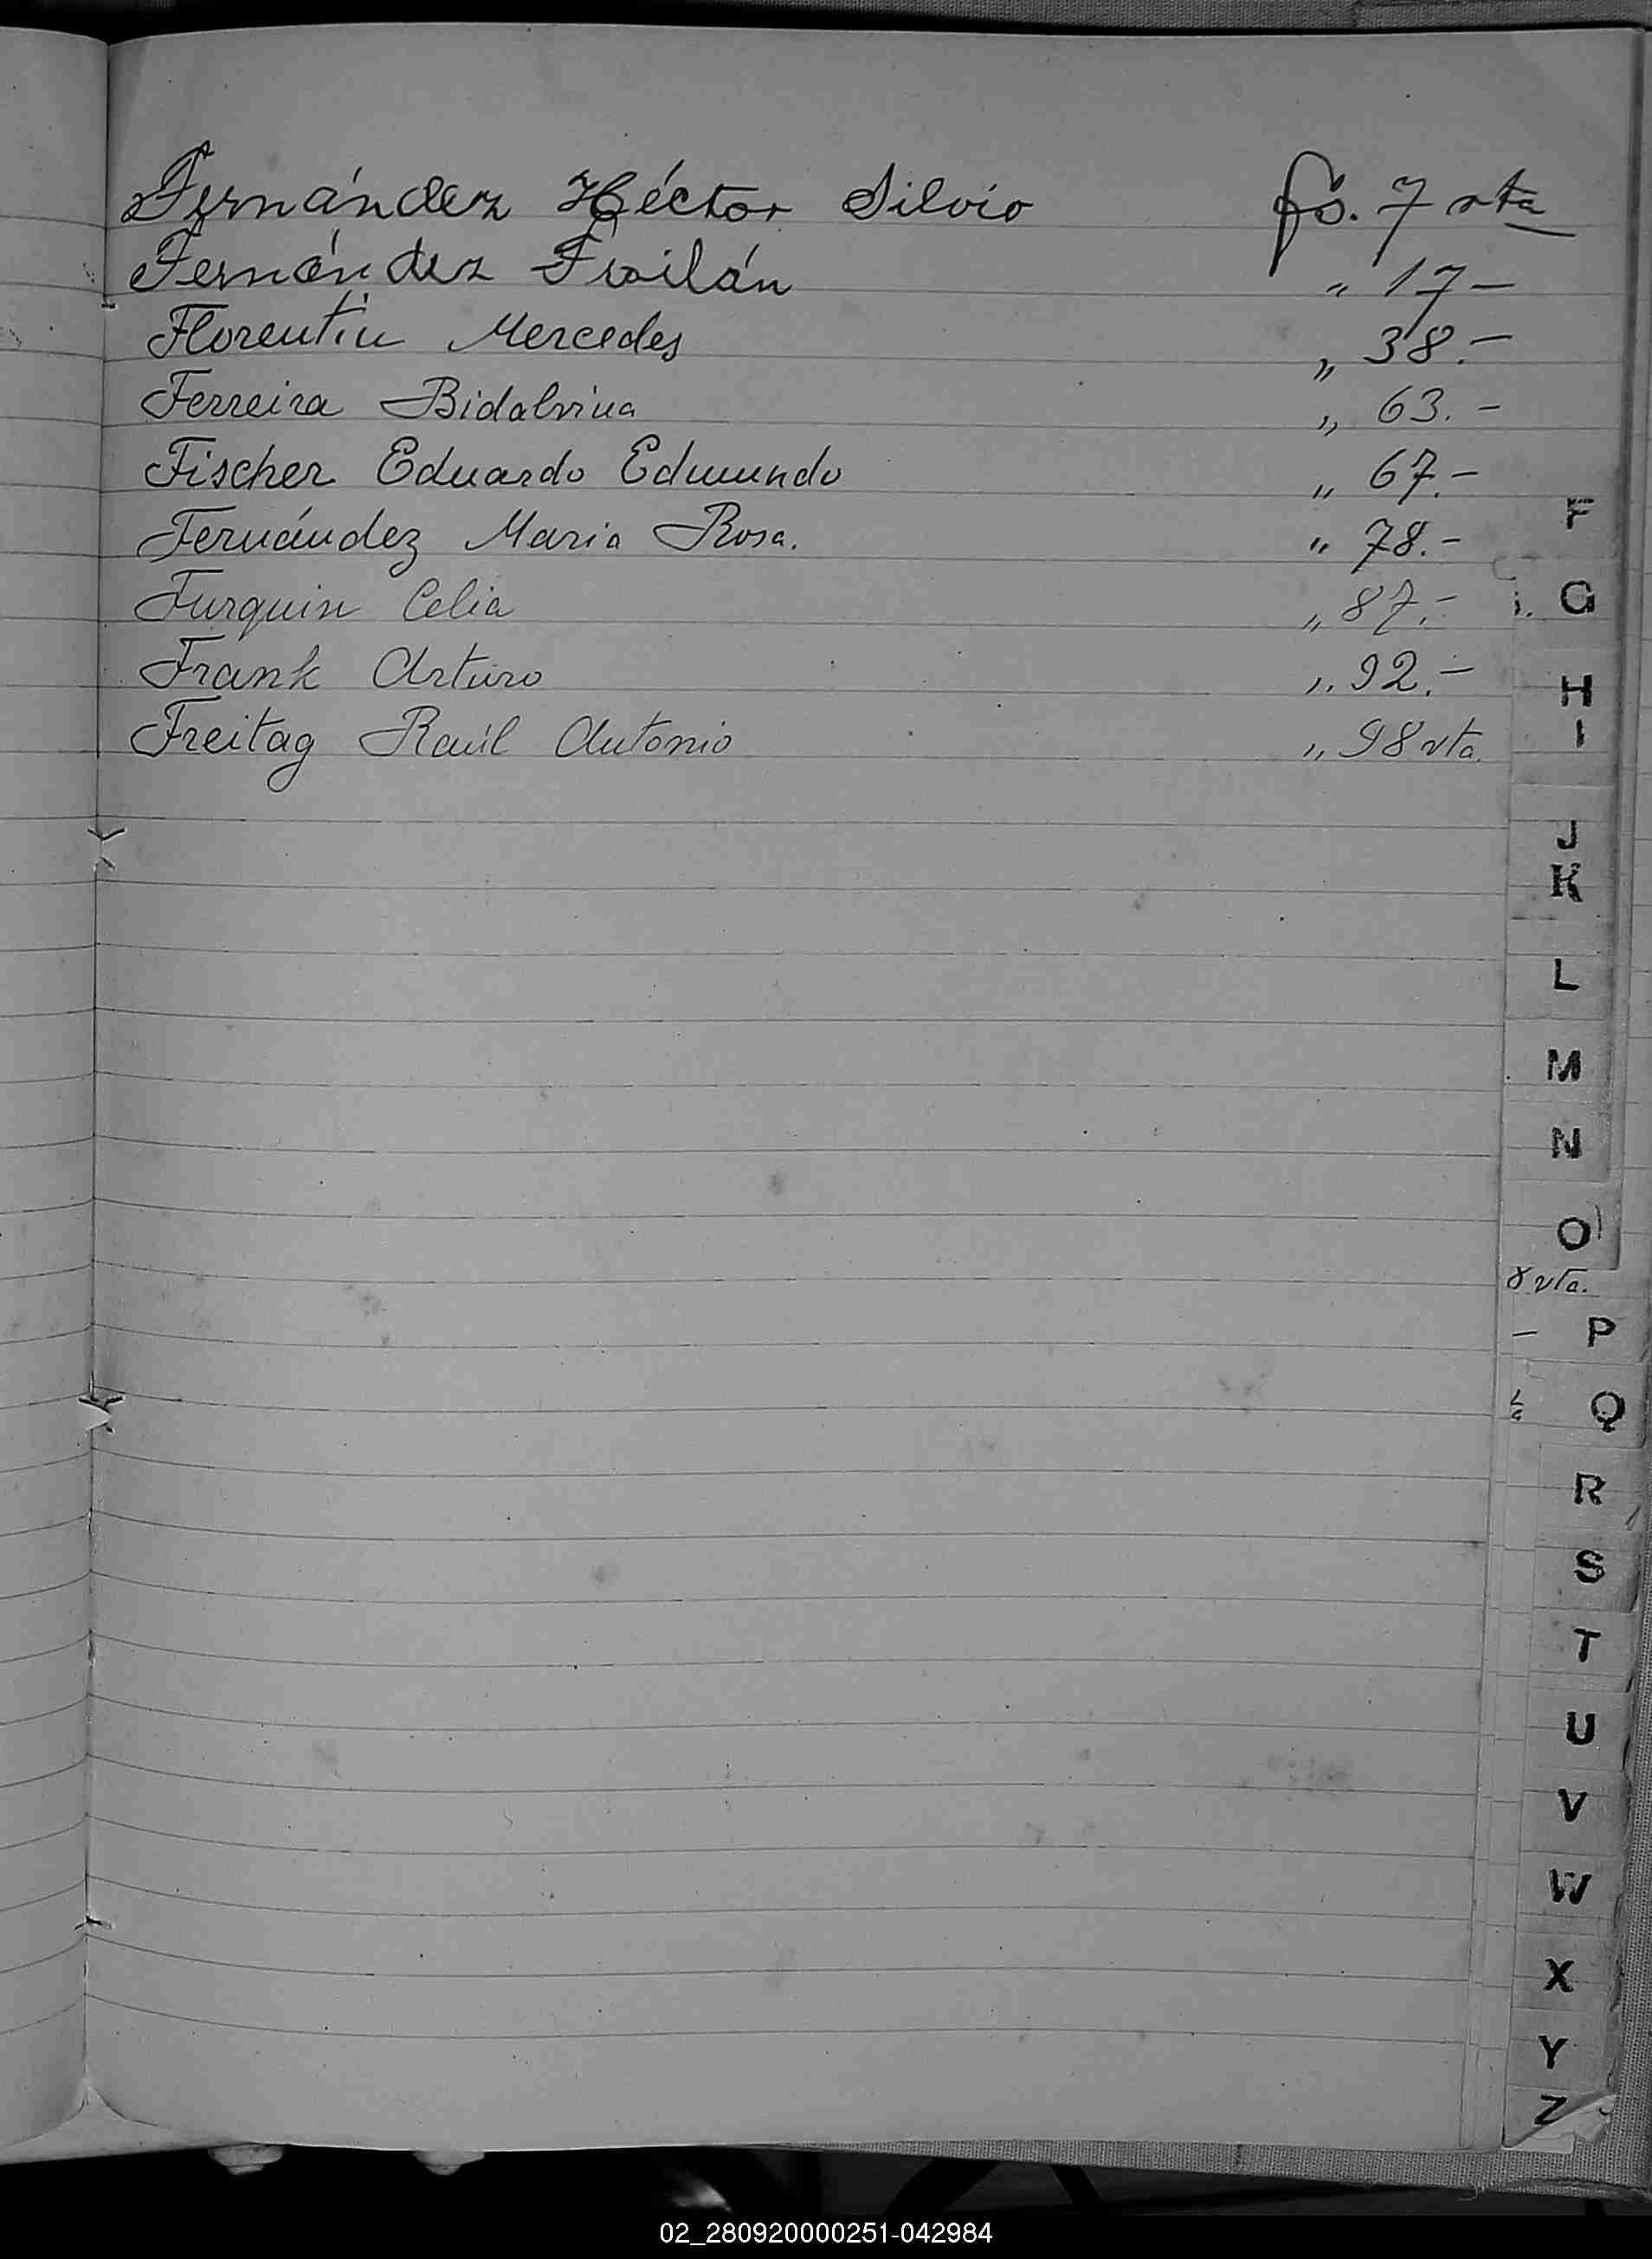 Fernández Héctor Silvio fo. 7 vta
Fernández Froilán " 17 -
Florentin Mercedes " 38.-
Ferreira Bidalvina " 63.-
Fischer Eduardo Edmundo " 67.-
Fernández Maria Rosa. " 78.-
Furquin Celia " 87.-
Frank Arturo " 92.-
Freitag Raúl Antonio " 98 vta.
F
G
H
I
J
K
L
M
N
O
8 vta.
P
Q
R
S
T
U
V
W
X
Y
Z
02_280920000251-042984